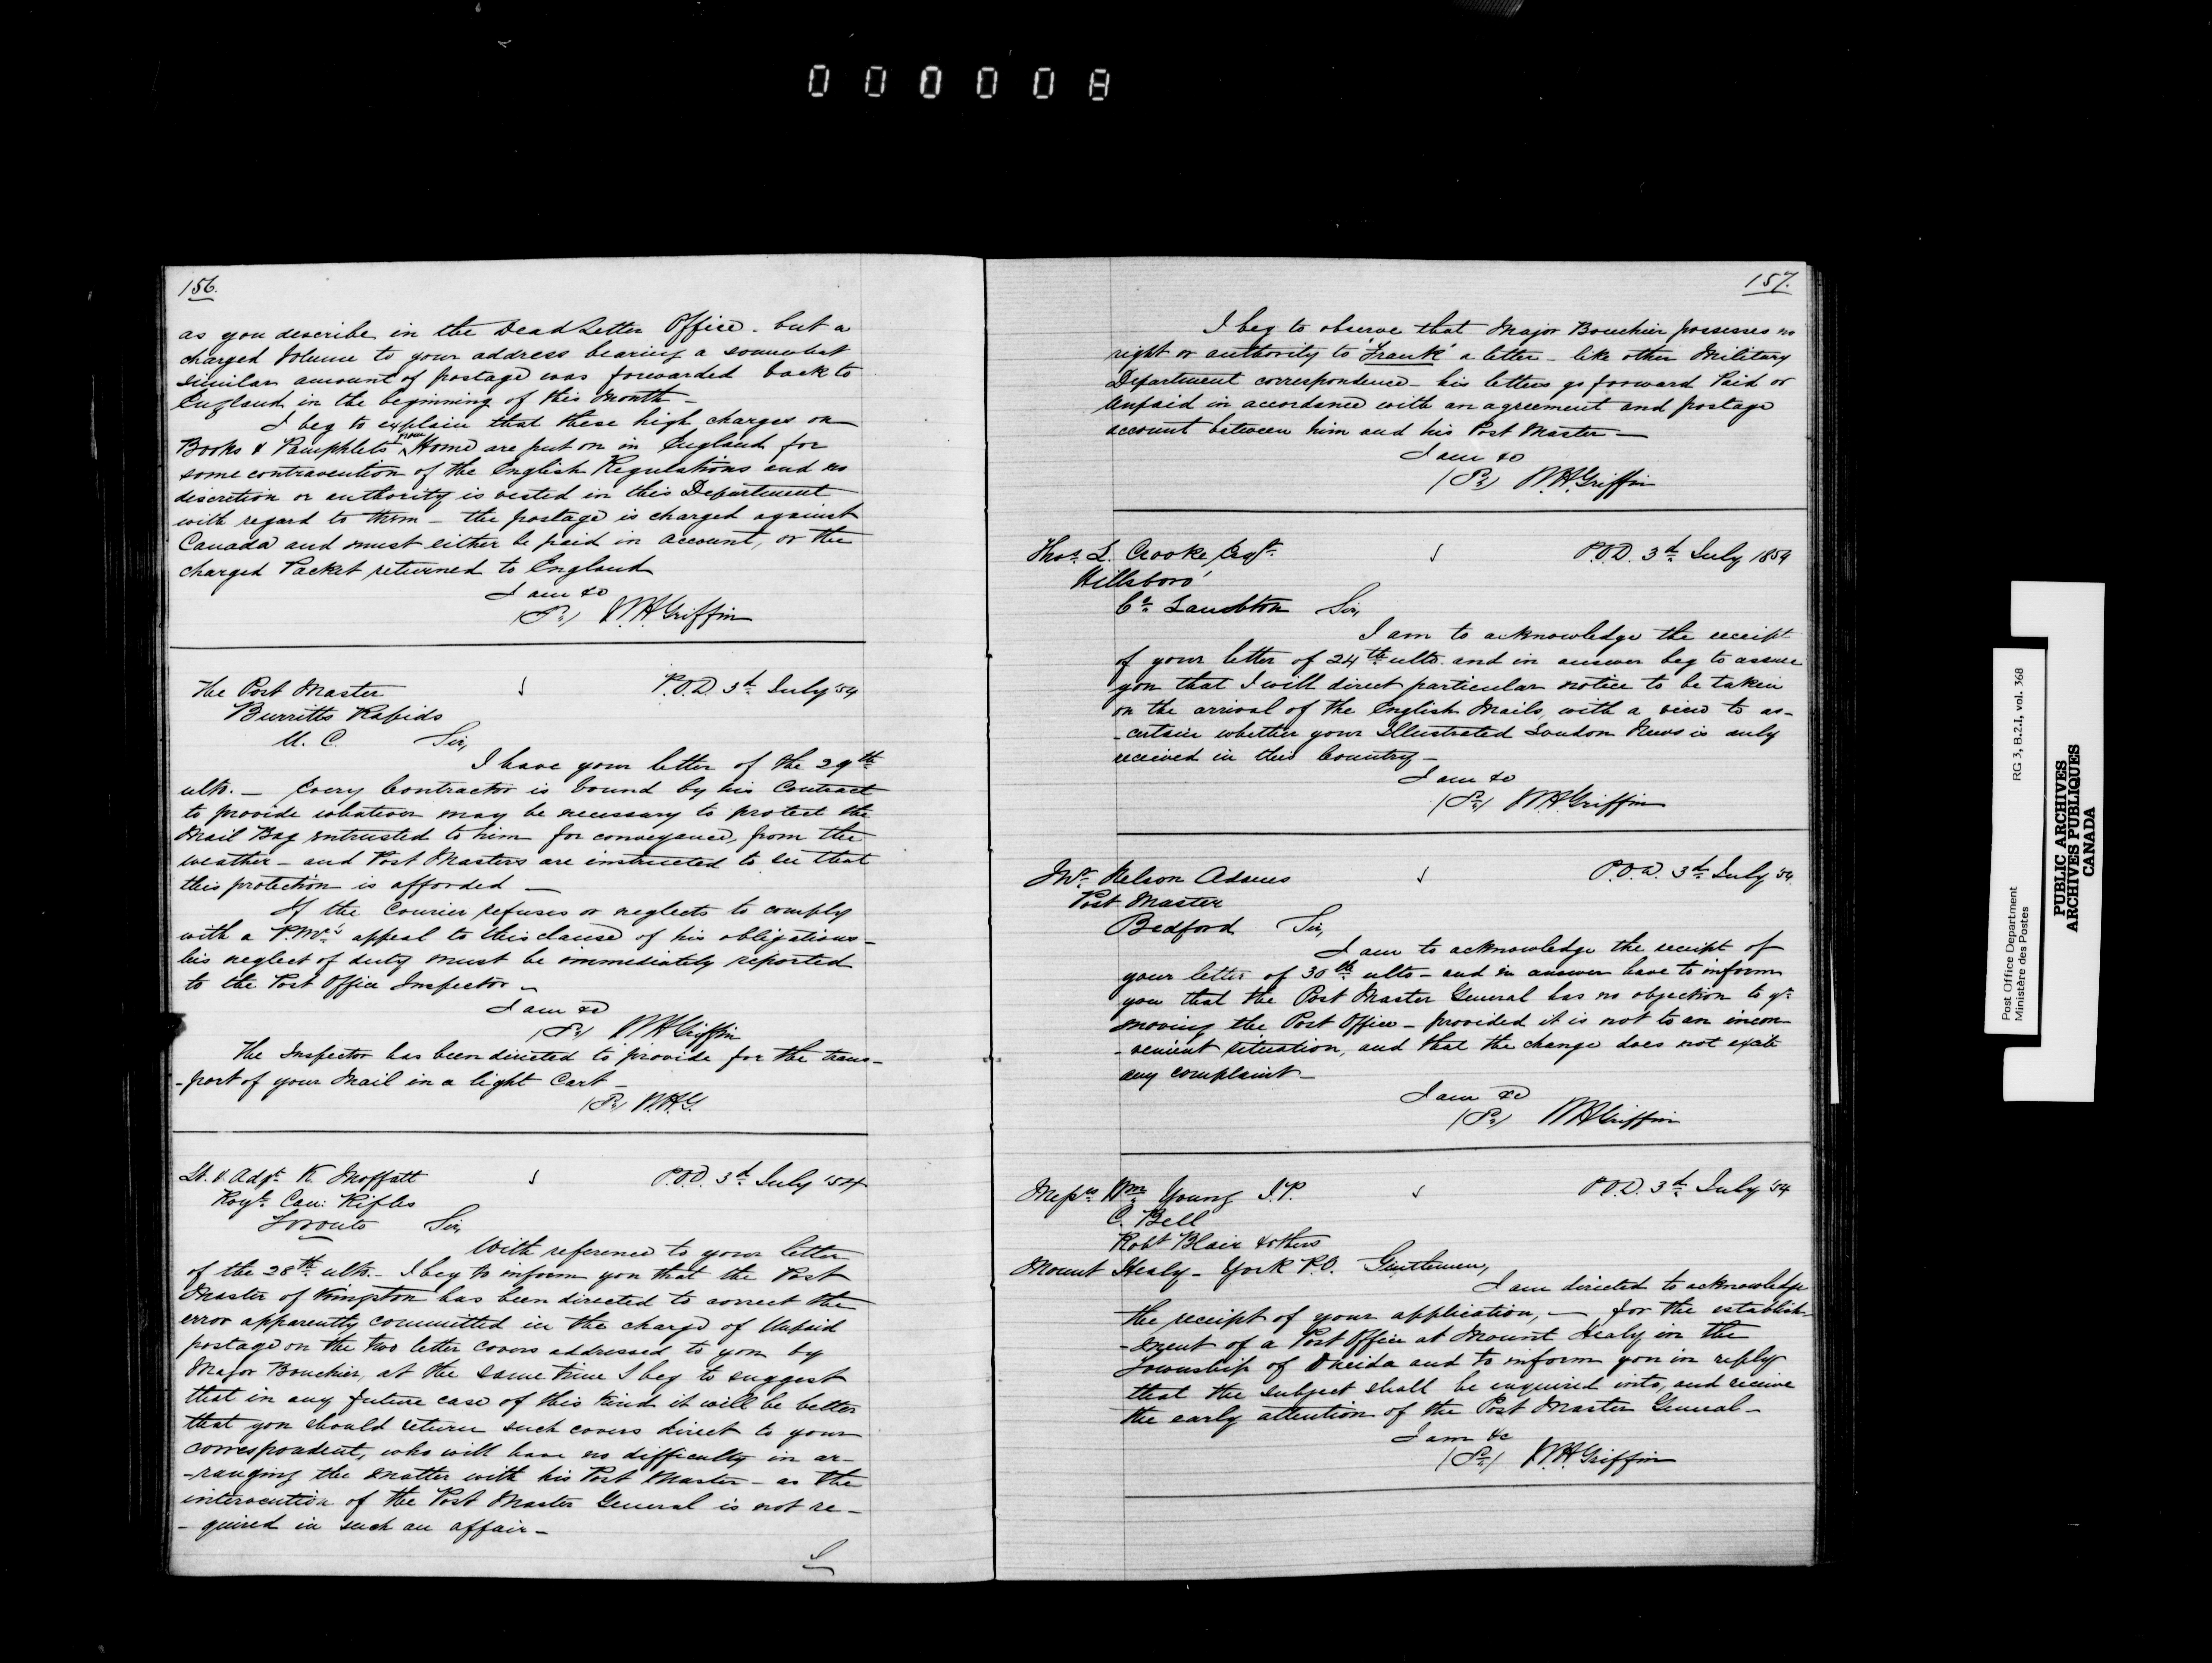 000008
156.
as you describe in the Dead Letter Office. but a
charged volume to your address bearing a somewhat
similar amount of postage was forwarded back to
England in the beginning of this month –
I beg to explain that these high charges on
Books & Pamphlets from Home are put on in England for
some contravention of the English Regulations and no
discretion or authority is vested in this Department
with regard to them – the postage is charged against
Canada and must either be paid in account, or the
charged Packet returned to England
I am &c
W.H. Griffin
The Post Master
P.O.D. 3d July '54
Burritts Rapids
U. C. Sir,
I have your letter of the 29th
ulto. – Every Contractor is bound by his Contract
to provide whatever may be necessary to protect the
Mail Bag entrusted to him for conveyance, from the
weather – and Post Masters are instructed to see that
this protection is afforded –
If the Courier refuses or neglects to comply
with a P.Mr's appeal to this clause of his obligations –
his neglect of duty must be immediately reported
to the Post Office Inspector –
I am &c
W H Griffin
The Inspector has been directed to provide for the trans-
-port of your Mail in a light Cart –
W.H.G.
Lt. & Adjt. K. Moffatt
P.O.D. 3d July '54
Royl. Can: Rifles
Toronto Sir,
With reference to your letter
of the 28th ulto. – I beg to inform you that the Post
Master of Kingston has been directed to correct the
error apparently committed in the charge of Unpaid
postage on the two letter covers addressed to you by
Major Bouchier, at the same time I beg to suggest
that in any future case of this kind it will be better
that you should return such covers direct to your
correspondent, who will have no difficulty in ar-
-ranging the matter with his Post Master – as the
intervention of the Post Master General is not re-
-quired in such an affair –
I
157.
I beg to observe that Major Bouchier possesses no
right or authority to 'Frank' a letter – like other Military
Department correspondence – his letters go forward Paid or
Unpaid in accordance with an agreement and postage
account between him and his Post Master –
I am &c
W.H. Griffin
Thos. L. Crooke Esqr.
P.O.D. 3d July 1854
Hillsboro'
Co. Lambton Sir,
I am to acknowledge the receipt
of your letter of 24th ulto. and in answer beg to assure
you that I will direct particular notice to be taken
on the arrival of the English Mails, with a view to as-
-certain whether your Illustrated London News is duly
received in this Country –
I am &c
W H Griffin
Mr. Nelson Adams
P.O.D. 3d July '54
Post Master
Bedford Sir,
I am to acknowledge the receipt of
your letter of 30th ulto – and in answer have to inform
you that the Post Master General has no objection to yr.
moving the Post Office – provided it is not to an incon-
-venient situation, and that the change does not excite
any complaint –
I am &c
W H Griffin
Messrs Wm Young J.P.
P.O.D. 3d July '54
C. Bell
Robt Blair & others
Mount Healy – York P.O. Gentlemen,
I am directed to acknowledge
the receipt of your application, – for the establish-
-ment of a Post Office at Mount Healy in the
Township of Oneida and to inform you in reply
that the subject shall be enquired into, and receive
the early attention of the Post Master General –
I am &c
W.H. Griffin
Post Office Department RG 3, B.2.I, vol. 368
Ministère des Postes
PUBLIC ARCHIVES
ARCHIVES PUBLIQUES
CANADA